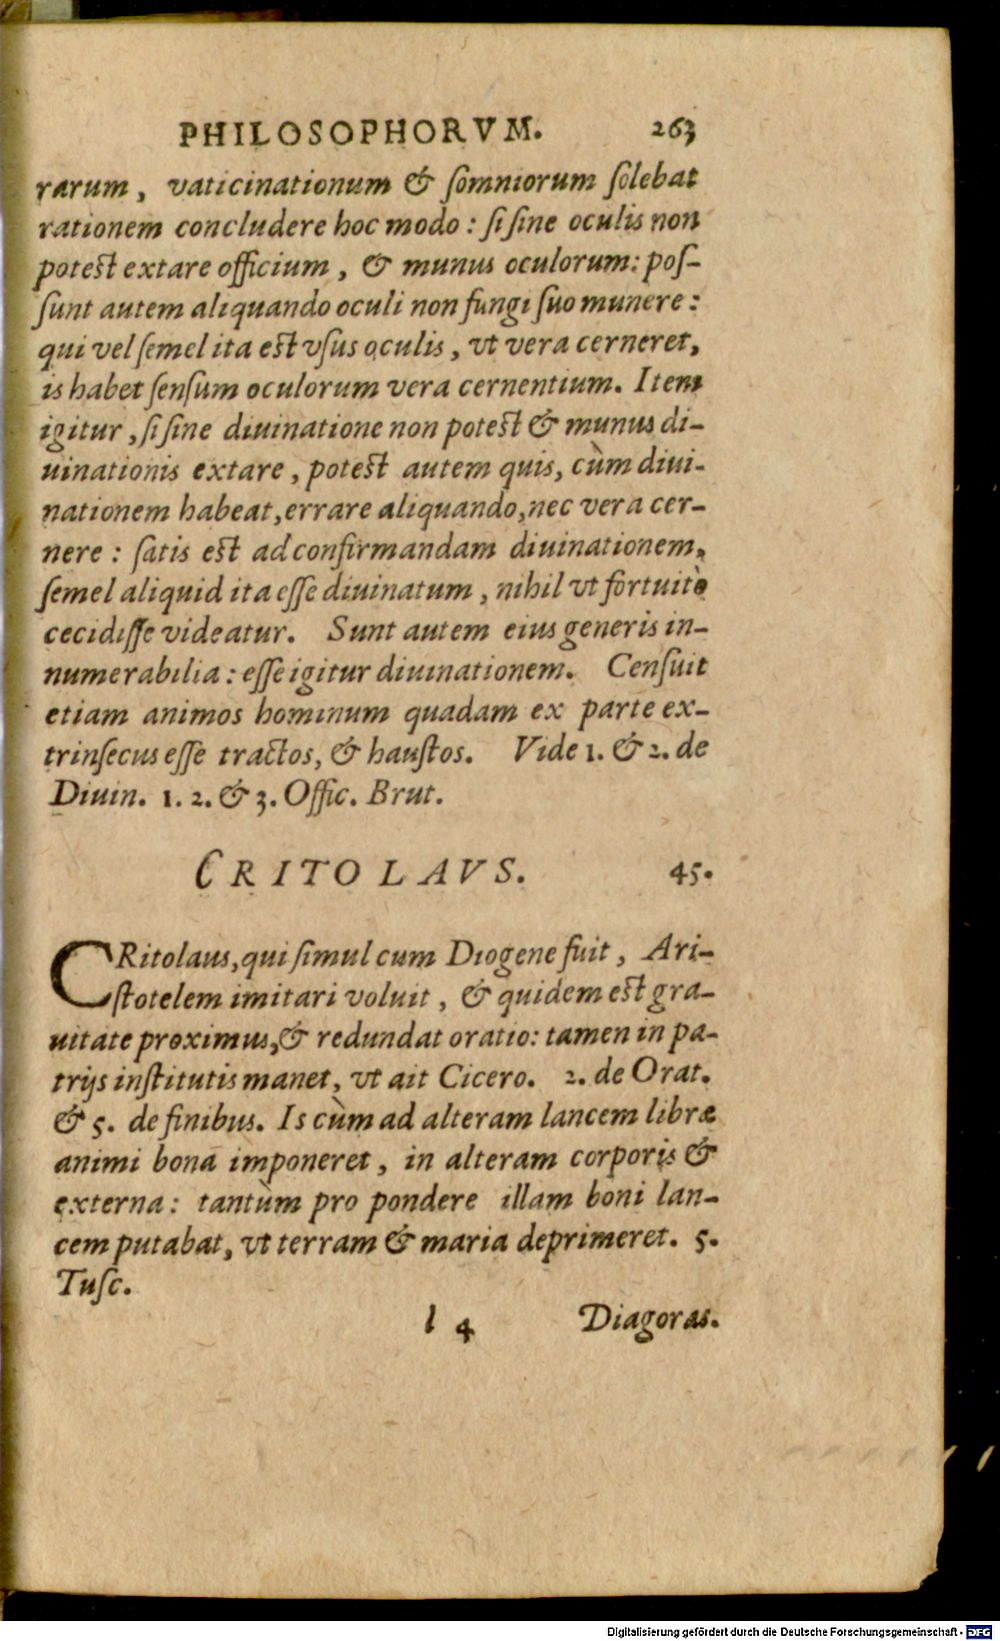 PHILOSOPHORVM. 263
rarum, vaticinationum & ſomniorum ſolebat
rationem concludere hoc modo: ſi ſine oculis non
poteſt extare officium, & munus oculorum: poſ-
ſunt autem aliquando oculi non fungi ſuo munere:
qui vel ſemel ita eſt vſus oculis, vt vera cerneret,
is habet ſenſum oculorum vera cernentium. Item
igitur, ſi ſine diuinatione non poteſt & munus di-
uinationis extare, poteſt autem quis, cùm diui-
nationem habeat, errare aliquando, nec vera cer-
nere: ſatis eſt ad confirmandam diuinationem,
ſemel aliquid ita eſſe diuinatum, nihil vt fortuitò
cecidiſſe videatur. Sunt autem eius generis in-
numerabilia: eſſe igitur diuinationem. Cenſuit
etiam animos hominum quadam ex parte ex-
trinſecus eſſe tractos, & hauſtos. Vide 1. & 2. de
Diuin. 1. 2. & 3. Offic. Brut.
CRITOLAVS. 45.
CRitolaus, qui ſimul cum Diogene fuit, Ari-
ſtotelem imitari voluit, & quidem eſt gra-
uitate proximus, & redundat oratio: tamen in pa-
trijs inſtitutis manet, vt ait Cicero. 2. de Orat.
& 5. de finibus. Is cùm ad alteram lancem libræ
animi bona imponeret, in alteram corporis &
externa: tantùm pro pondere illam boni lan-
cem putabat, vt terram & maria deprimeret. 5.
Tuſc.
l 4 Diagoras.
Digitalisierung gefördert durch die Deutsche Forschungsgemeinschaft - DFG